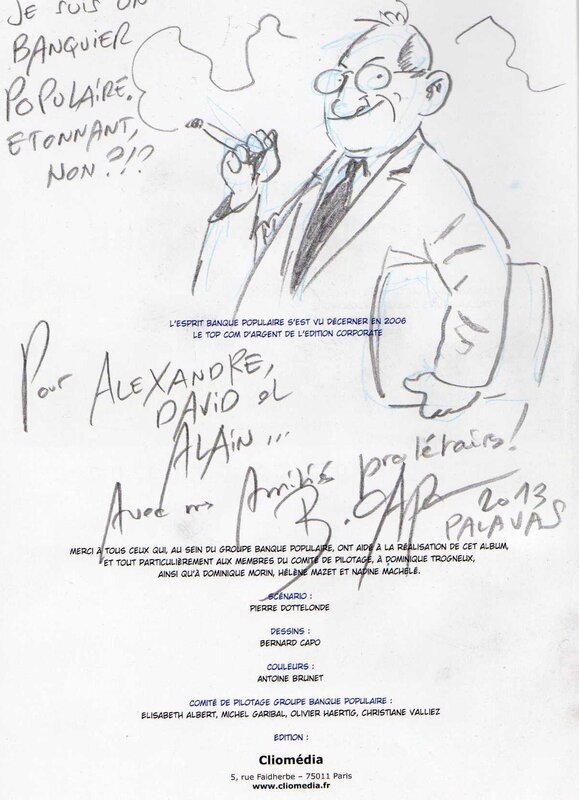 JE SUIS UN
BANQUIER
POPULAIRE.
ETONNANT,
NON ?!?
L'ESPRIT BANQUE POPULAIRE S'EST VU DÉCERNER EN 2006
LE TOP COM D'ARGENT DE L'EDITION CORPORATE
Pour ALEXANDRE,
DAVID et
ALAIN ...
Avec mes Amitiés prolétaires !
B. CAPO
2013
PALAVAS
MERCI À TOUS CEUX QUI, AU SEIN DU GROUPE BANQUE POPULAIRE, ONT AIDÉ À LA RÉALISATION DE CET ALBUM,
ET TOUT PARTICULIÈREMENT AUX MEMBRES DU COMITÉ DE PILOTAGE, À DOMINIQUE TROGNEUX,
AINSI QU'À DOMINIQUE MORIN, HÉLÈNE MAZET ET NADINE MACHELÉ.
SCÉNARIO :
PIERRE DOTTELONDE
DESSINS :
BERNARD CAPO
COULEURS :
ANTOINE BRUNET
COMITÉ DE PILOTAGE GROUPE BANQUE POPULAIRE :
ELISABETH ALBERT, MICHEL GARIBAL, OLIVIER HAERTIG, CHRISTIANE VALLIEZ
EDITION :
Cliomédia
5, rue Faidherbe – 75011 Paris
www.cliomedia.fr